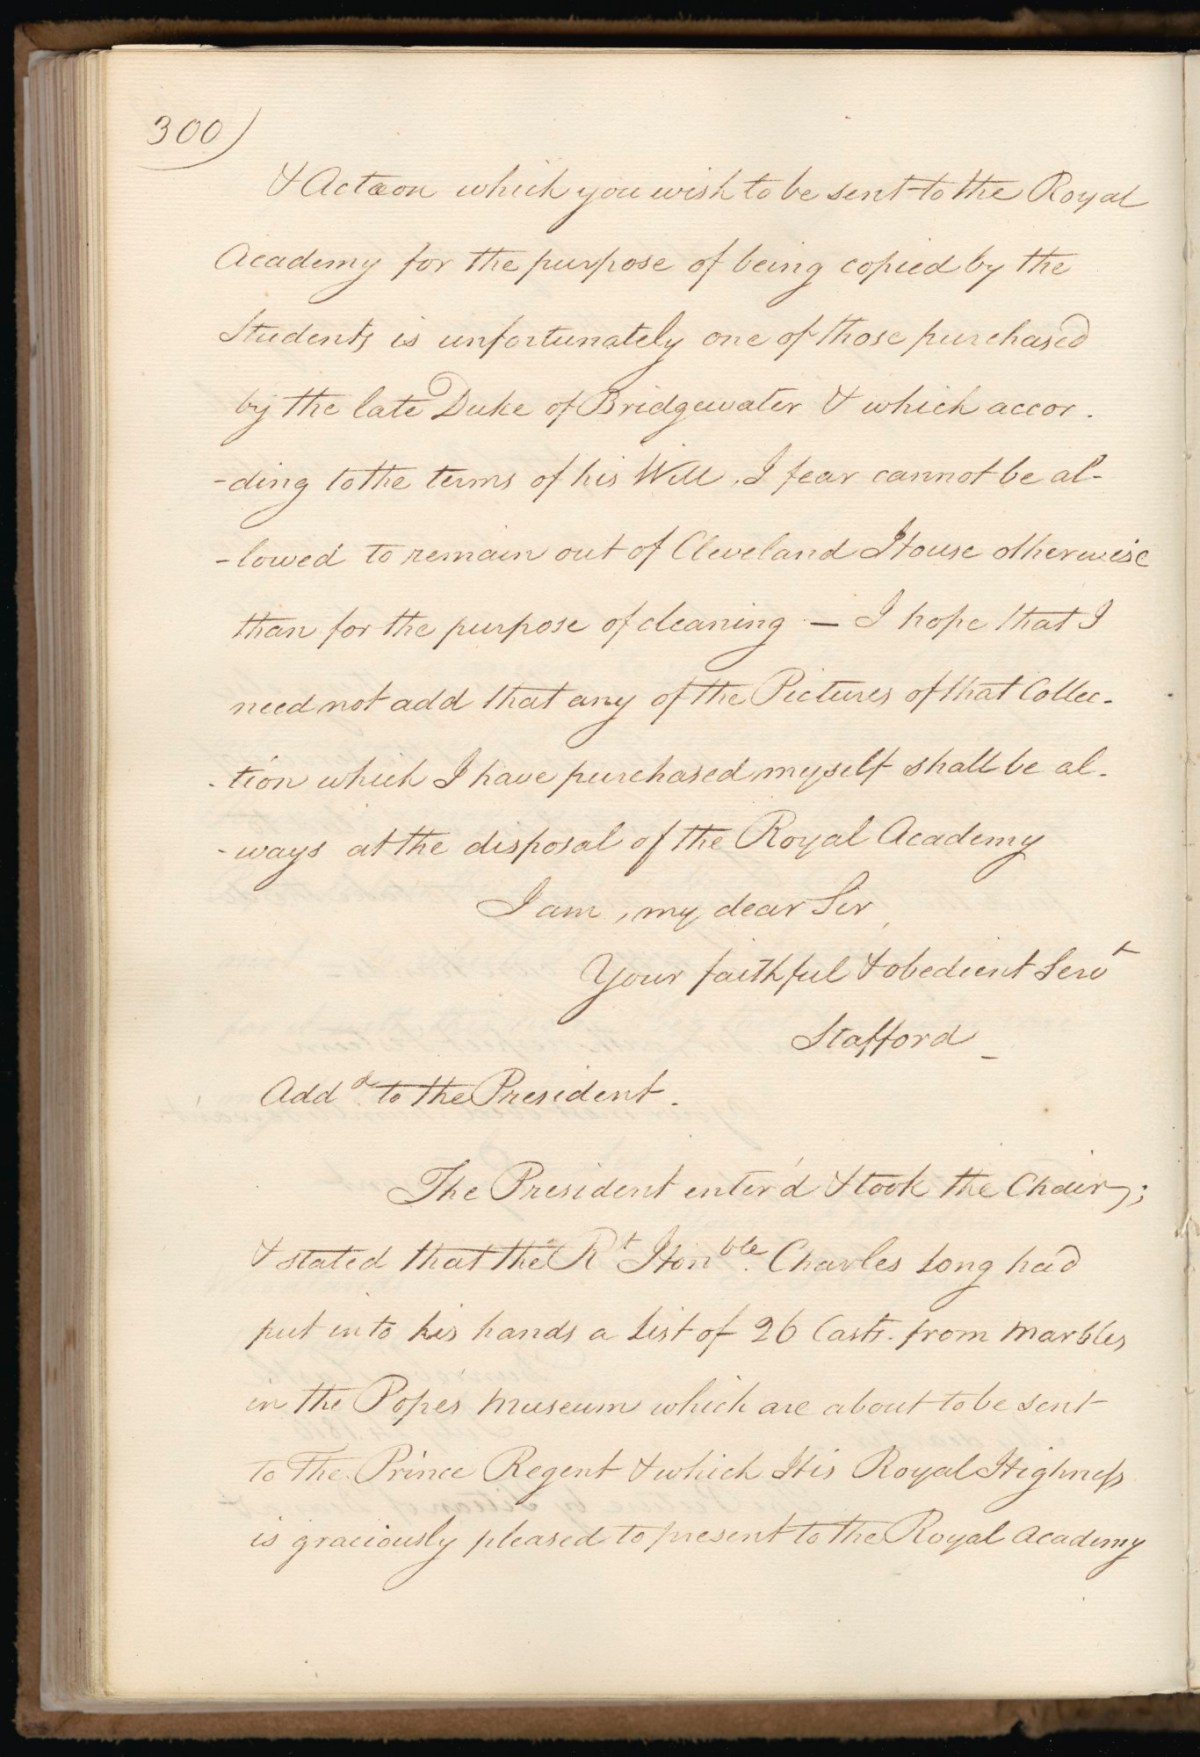 300)
& Actæon which you wish to be sent to the Royal
Academy for the purpose of being copied by the
Students is unfortunately one of those purchased
by the late Duke of Bridgewater & which accor.
-ding to the terms of his Will . I fear cannot be al-
-lowed to remain out of Cleveland House otherwise
than for the purpose of cleaning — I hope that I
need not add that any of the Pictures of that Collec-
-tion which I have purchased myself shall be al-
-ways at the disposal of the Royal Academy
I am , my dear Sir
Your faithful & obedient Servt
Stafford _
Addd. to the President .
The President enter'd & took the Chair ;
& stated that the Rt Honble. Charles Long had
put into his hands a List of 26 Casts. from Marbles
in the Popes Museum which are about to be sent
to The Prince Regent & which His Royal Highness
is graciously pleased to present to the Royal Academy